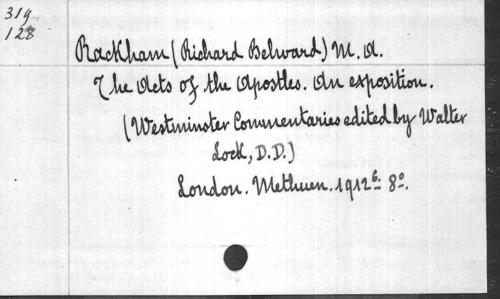 31g
128
Rackham (Richard Belward) M. A.
The Acts of the Apostles. An exposition.
(Westminster Commentaries edited by Walter
Lock, D.D.)
London. Methuen. 1912⁶. 8º.